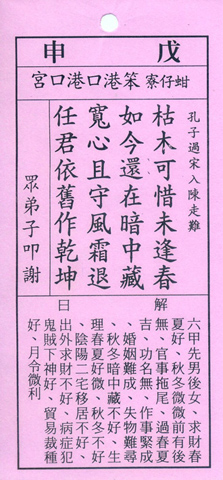 戊申
蚶仔寮 笨港口港口宮
孔子過宋入陳走難
枯木可惜未逢春
如今還在暗中藏
寬心且守風霜退
任君依舊作乾坤
眾弟子叩謝
解曰
六甲先男後女、求財春
夏好、秋冬微微前有後
無、官事拖尾、過春夏
吉、功名無、作事緊成
、婚姻難成、失物難尋
、秋冬暗中藏不好、生
理春夏好微、秋冬不好
、陰陽二宅移居不好、
出外求財不好、病症犯
鬼賊下神好、貿易裁種
好、月令微利